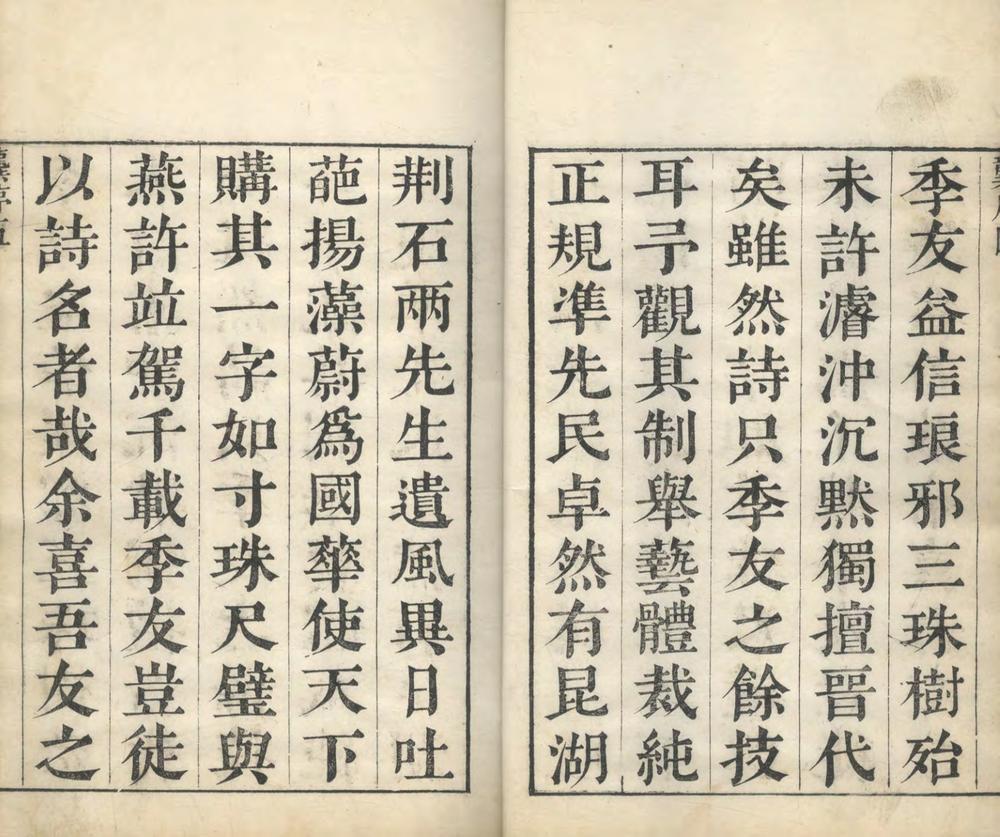 季友益信琅邪三珠樹殆
未許濬沖沉黙獨擅晋代
矣雖然詩只季友之餘技
耳予觀其制舉藝體裁純
正規準先民卓然有昆湖
荆石两先生遺風異日吐
葩揚藻蔚爲國華使天下
購其一字如寸珠尺璧與
燕許竝駕千載季友豈徒
以詩名者哉余喜吾友之